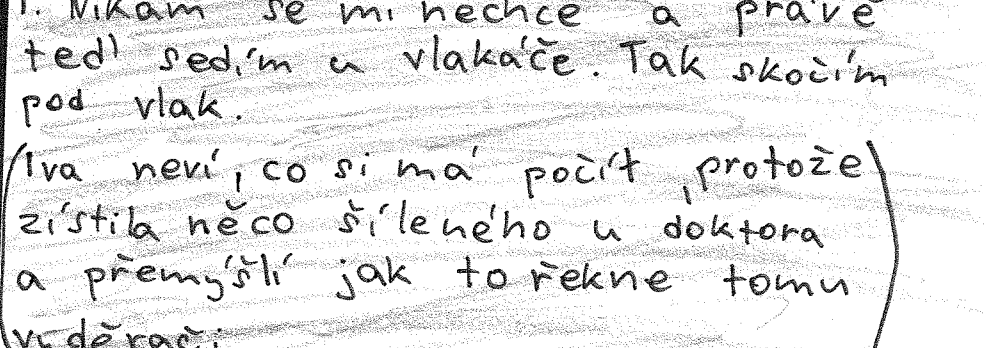 1. Nikam se mi nechce a pravě
teď sedím u vlakáče. Tak skočím
pod vlak.
(Iva neví, co si má počít, protože)
zístila něco šíleného u doktora
a přemýšlí jak to řekne tomu
vyděrači